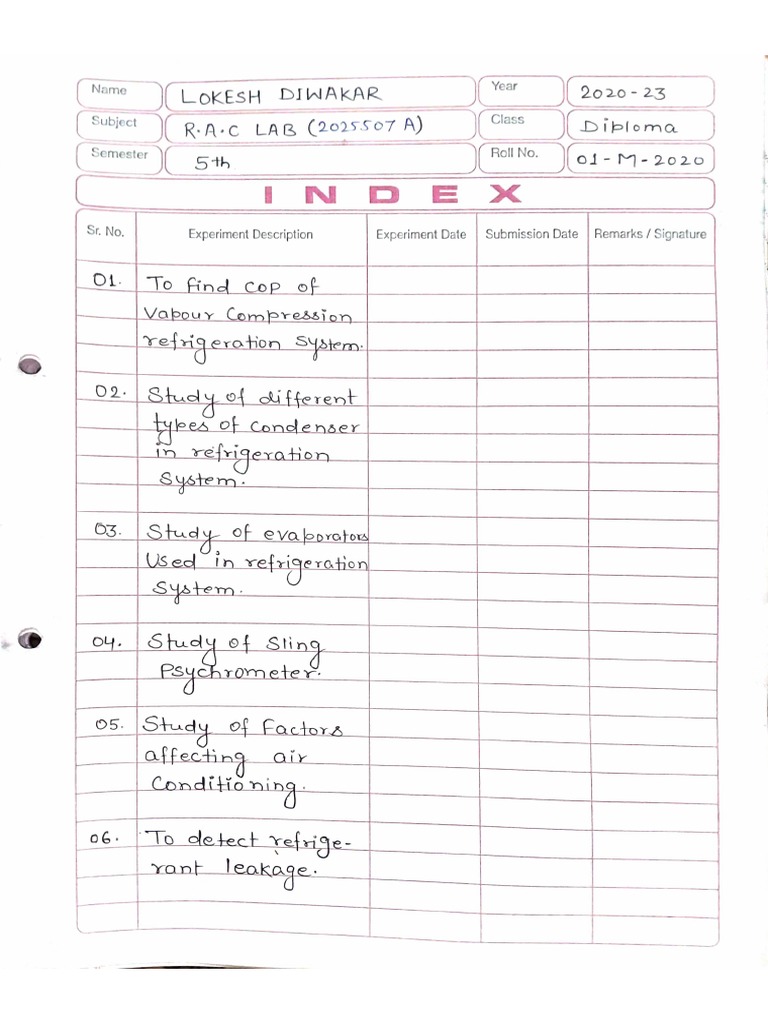 Name LOKESH DIWAKAR Year 2020-23
Subject R.A.C LAB (2025507 A) Class Diploma
Semester 5th Roll No. 01-M-2020
INDEX
Sr. No. Experiment Description Experiment Date Submission Date Remarks / Signature
01. To find COP of
Vapour Compression
refrigeration System.
02. Study of different
types of condenser
in refrigeration
System.
03. Study of evaporators
Used in refrigeration
System.
04. Study of Sling
Psychrometer.
05. Study of Factors
affecting air
Conditioning.
06. To detect refrige-
rant leakage.